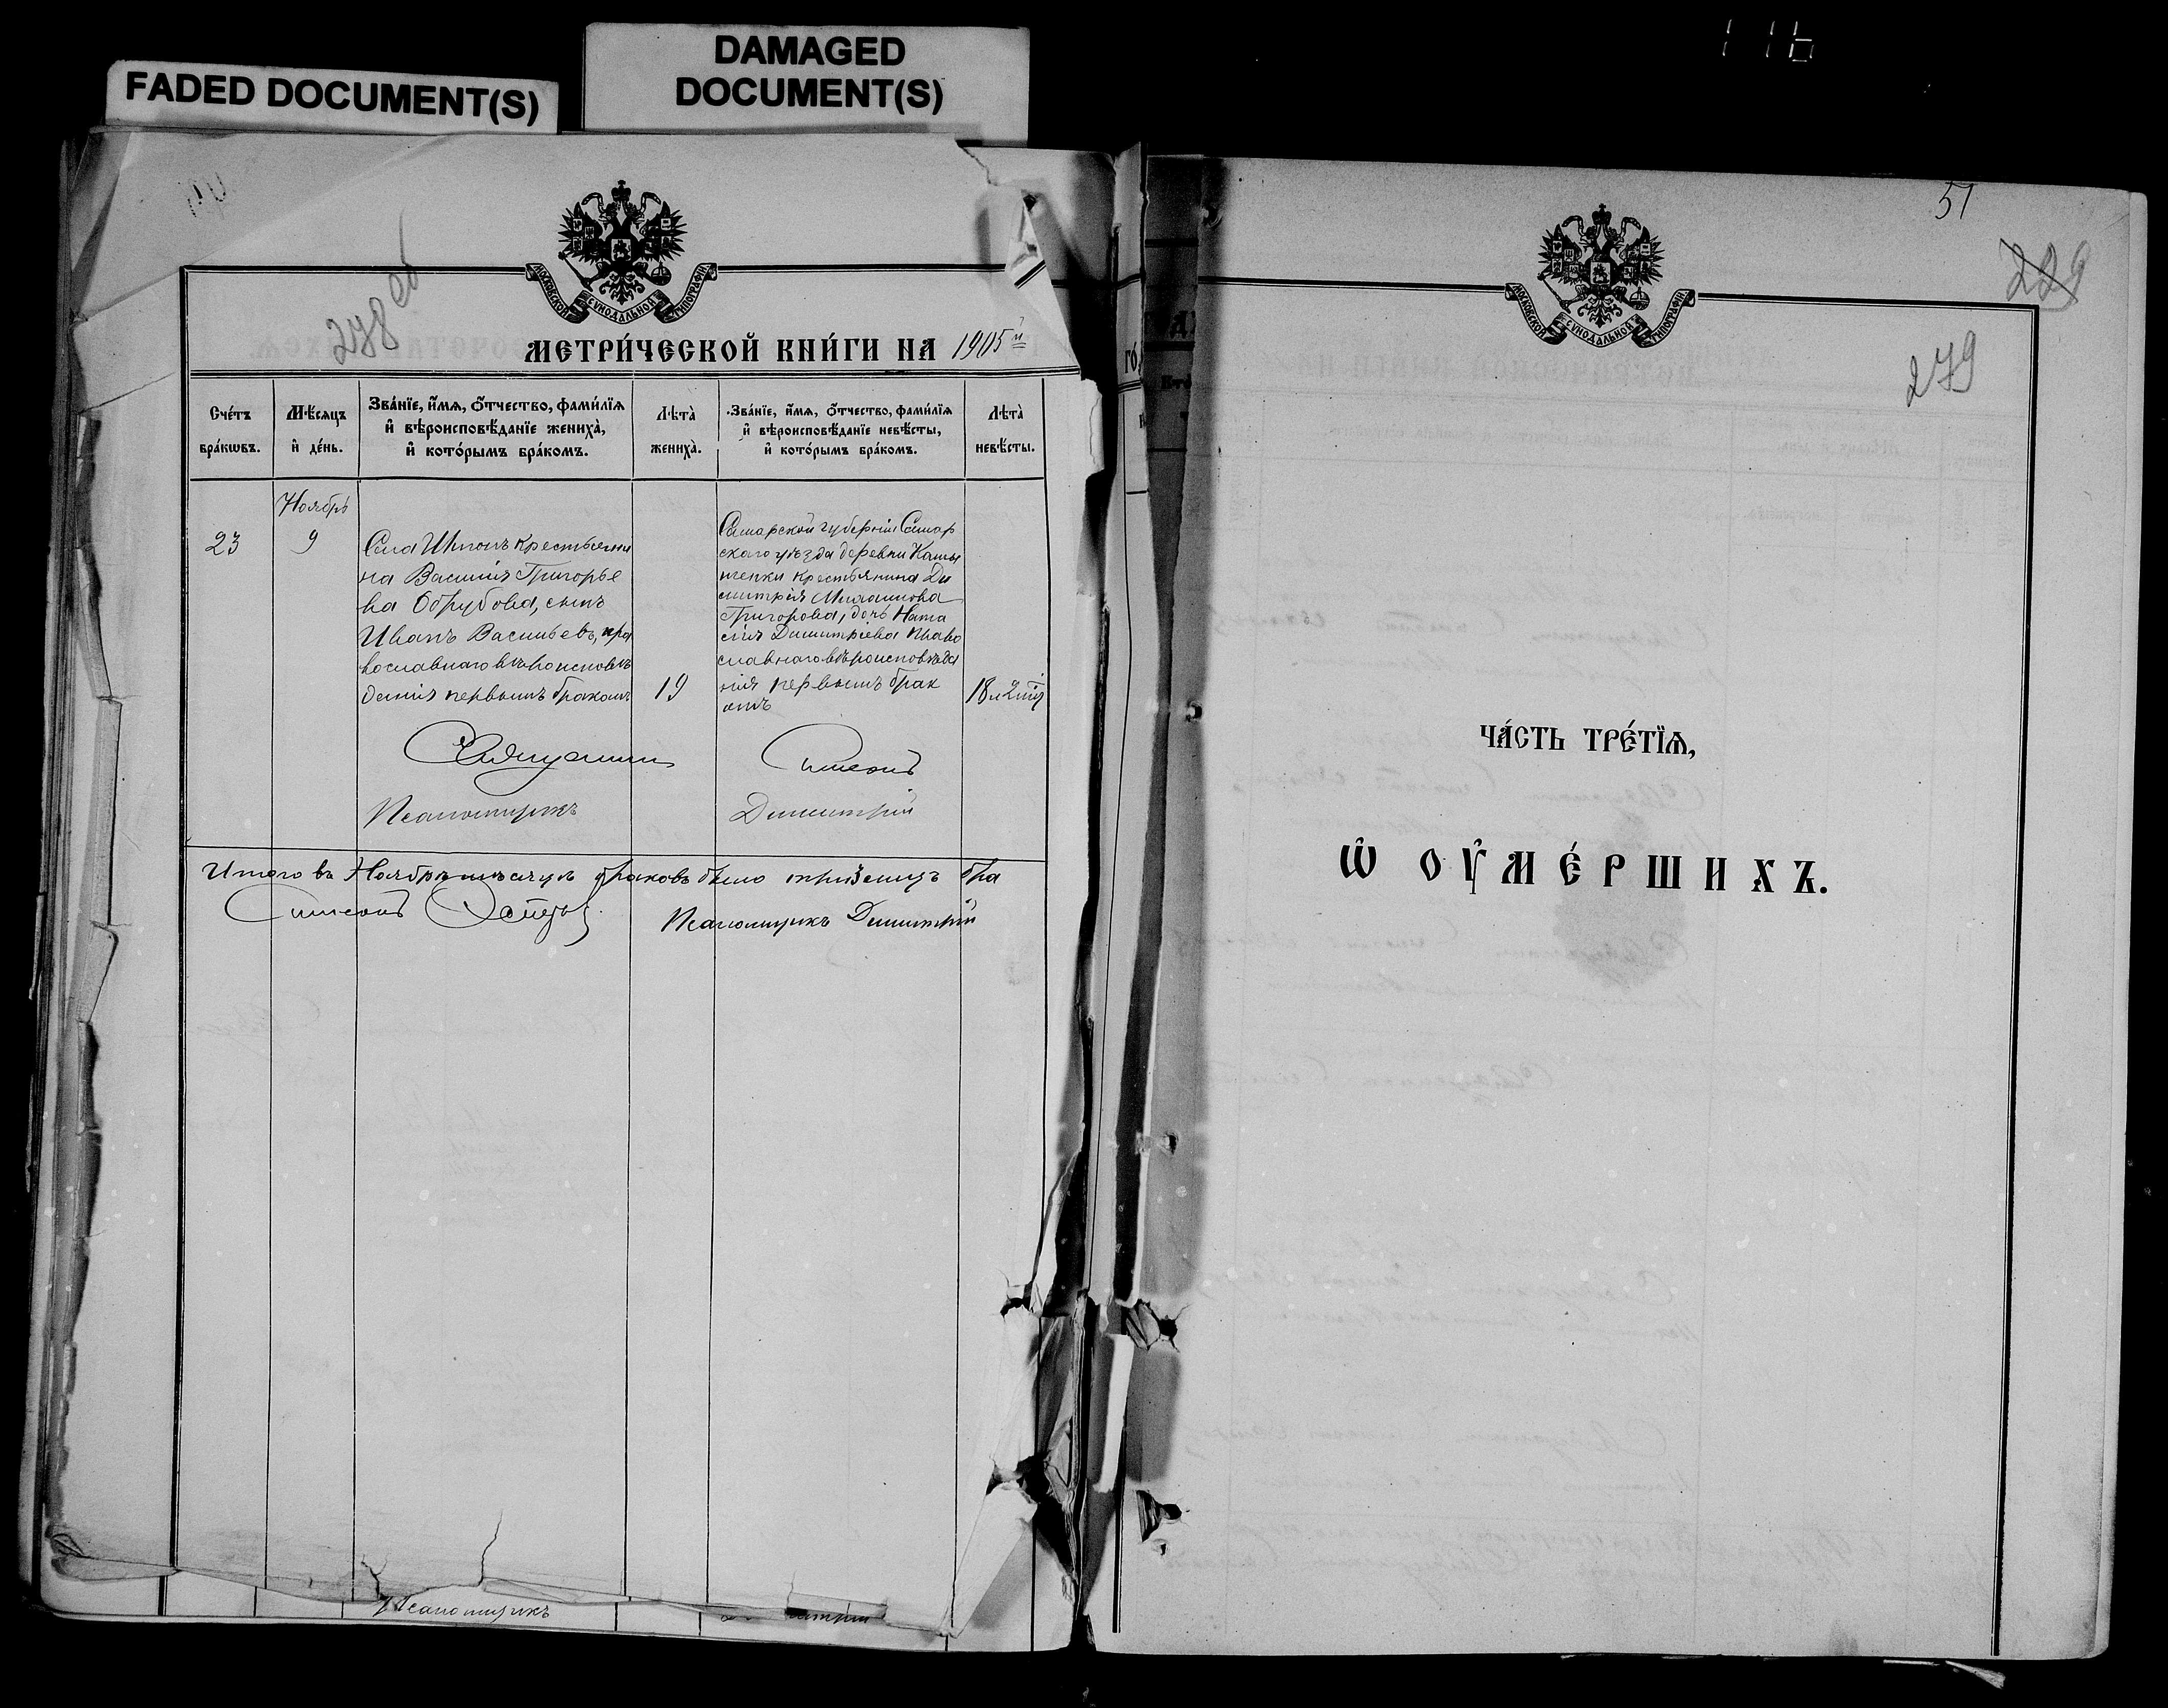 FADED DOCUMENT(S)
DAMAGED
DOCUMENT(S)
116
278 об
МОСКОВСКОЙ СѴНОДАЛЬНОЙ ТИПОГРАФІИ
МЕТРИ́ЧЕСКОЙ КНИ́ГИ НА 1905й
Сче́тъ
бра́кѡвъ.
Мѣ́сяцъ
и҆ де́нь.
Зва́нїе, и҆́мѧ, ѻ҆́тчество, фами́лїѧ
и҆ вѣроисповѣ́данїе жениха̀,
и҆ кото́рымъ бра́комъ.
Лѣта̀
жениха̀.
Зва́нїе, и҆́мѧ, ѻ҆́тчество, фами́лїѧ
и҆ вѣроисповѣ́данїе невѣ́сты,
и҆ кото́рымъ бра́комъ.
Лѣта̀
невѣ́сты.
Ноябрь
23
9
Села крестьяни
на Василія Григорье
ва Обрубова, сынъ
Иванъ Васильевъ, пра
вославнаго вѣроисповѣ
данія первымъ бракомъ
19
Самарской губерніи Самар
скаго уѣзда деревни
крестьянина Ди
митрія
Григорова, дочь Ната
лія Димитріева право
славнаго вѣроисповѣда
нія первымъ брак
омъ
18 л 2
Священникъ Симеонъ
Псаломщикъ Димитрій
Итого въ Ноябрѣ мѣсяцѣ браковъ было
Симеонъ
Псаломщикъ Димитрій
Псаломщикъ
51
229
279
МОСКОВСКОЙ СѴНОДАЛЬНОЙ ТИПОГРАФІИ
ЧА́СТЬ ТРЕ́ТЇѦ,
Ѡ҆ ОУ҆МЕ́РШИХЪ.